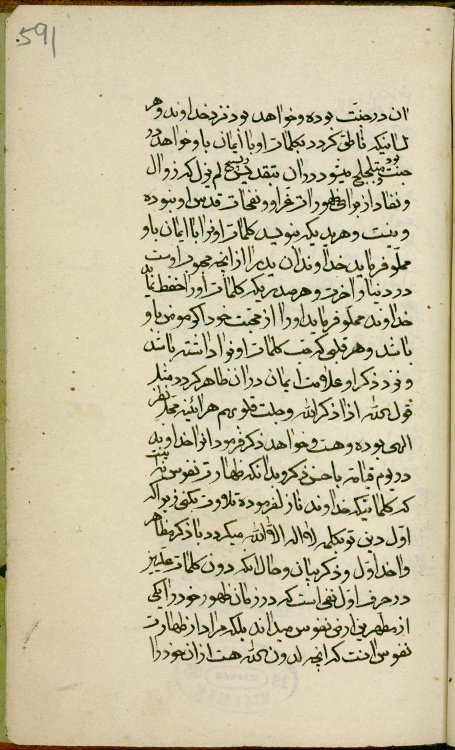 591
آن در جنت بوده و خواهد بود نزد خداوند و هر
لسانیکه ناطق گردد بکلمات او با ایمان باو خواهد بود در
جنت و متلجلج میشود در آن بتقدیس و تسبیح لم یزل که زوال
و نفاد از برای ظهورات غرا و و نفحات قدس او نبوده
و نیست و هر یدیکه بنویسد کلمات او را با ایمان باو
مملو فرماید خداوند آن ید را از آنچه محبوب اوست
در دنیا و آخرت و هر صدریکه کلمات او را حفظ نماید
خداوند مملو فرماید او را از محبت خود اگر مومن باو
باشد و هر قلبی که حب کلمات او را داشته باشد
و نزد ذکر او علامت ایمان در آن ظاهر گردد مثل
قول الله اذا ذکر الله وجلت قلوبهم هر آئینه محل نظر
الهی بوده و هست و خواهد ذکر فرمود او را خداوند
در یوم قیامة باحسن ذکر و بدانکه طهارت نفوس به این نیست
که کلماتیکه خداوند نازل فرموده تلاوت کنی زیرا که
اول دین تو بکلمه لا اله الا الله میگردد با ذکر مظاهر
واحد اول و ذکر بیان و حال آنکه دون کلمات علیین
در حرف اول نفی است که در زمان ظهور خود را یکی
از مطهرین ارض نفوس میداند بلکه مراد از طهارت
نفوس اینست که آنچه لدون الله هست از آن خود را